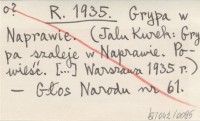 o?
R. 1935. Grypa w
Naprawie. (Jalu Kurek: Gry-
pa szaleje w Naprawie. Po-
wieść. [...] Warszawa 1935 r.)
– Głos Narodu nr 61.